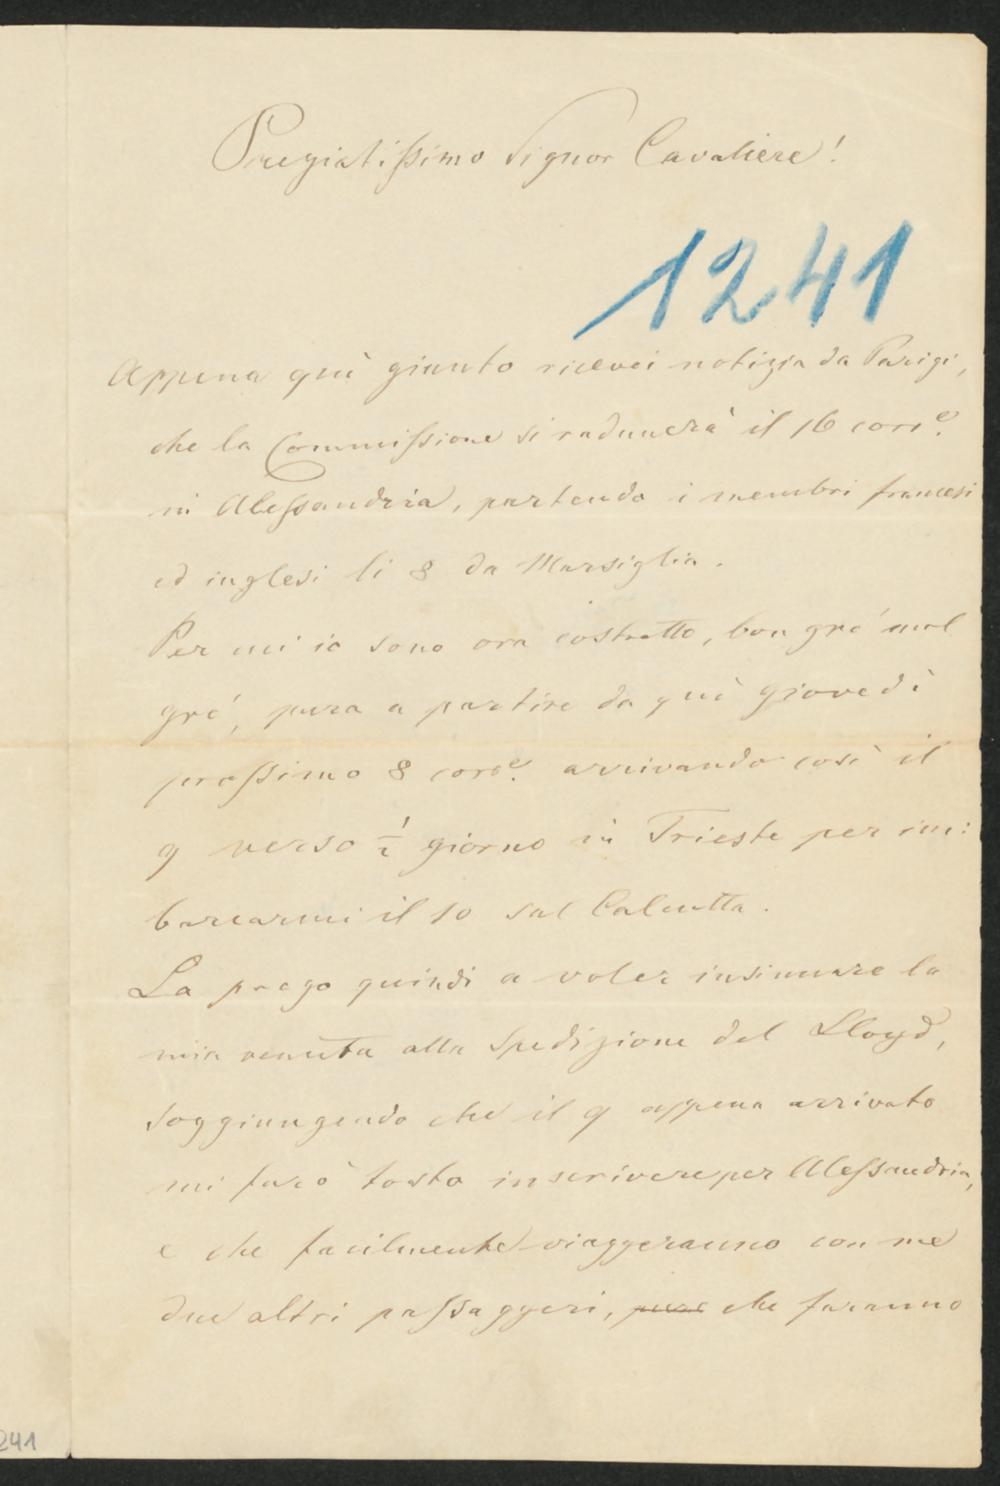 Pregiatissimo Signor Cavaliere!
1241
Appena quì giunto ricevei notizia da Parigi,
che la Commissione si radunerà il 16 corr.e
in Alessandria, partendo i membri francesi
ed inglesi li 8 da Marsiglia.
Per cui io sono ora costretto, bon gré mal
gré, pura a partire da quì giovedì
prossimo 8 corre. arrivando così il
9 verso ½ giorno in Trieste per im:
barcarmi il 10 sul Calcutta.
La prego quindi a voler insinuare la
mia venuta alla Spedizione del Lloyd,
soggiungendo che il 9 appena arrivato
mi farò tosto inscrivere per Alessandria,
e che facilmente viaggeranno con me
due altri passaggeri, che faranno
241